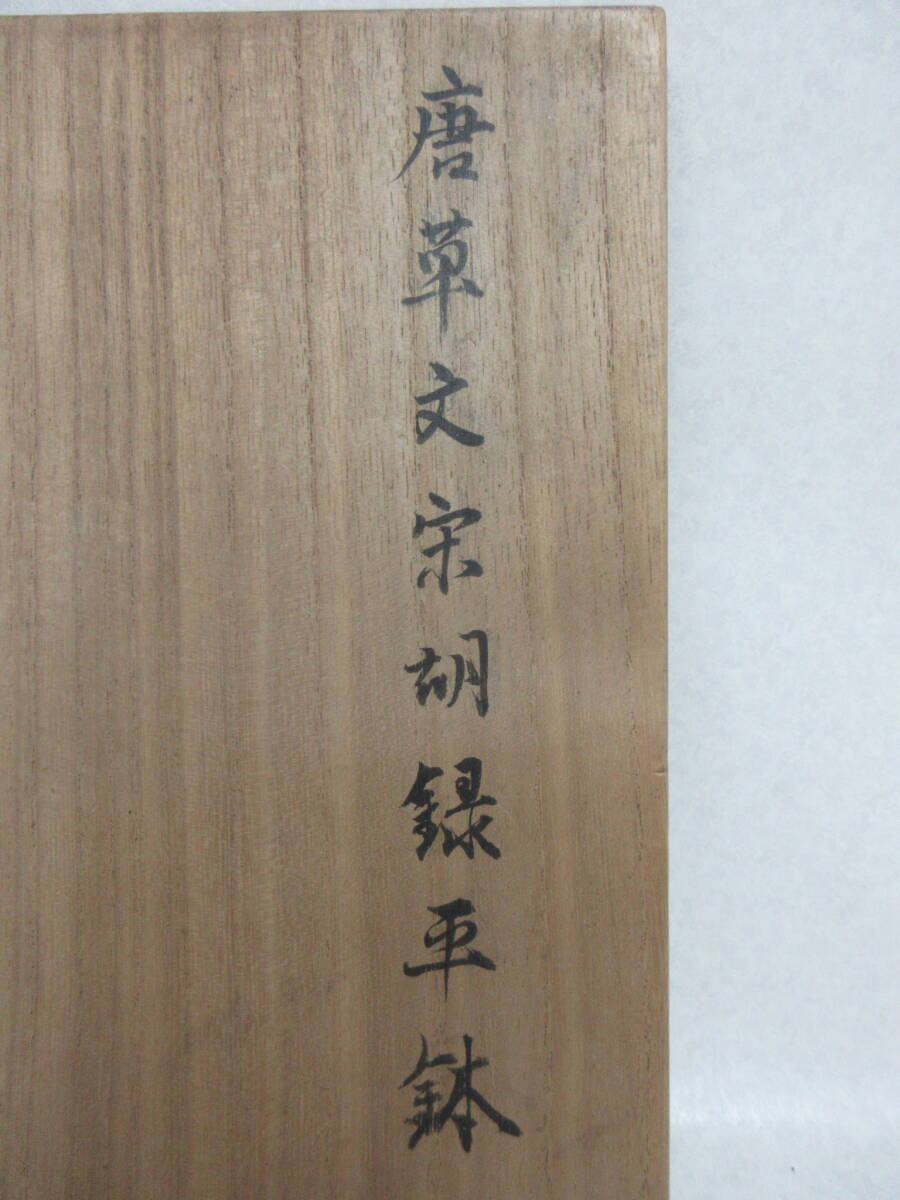 唐草文宋胡録平鉢